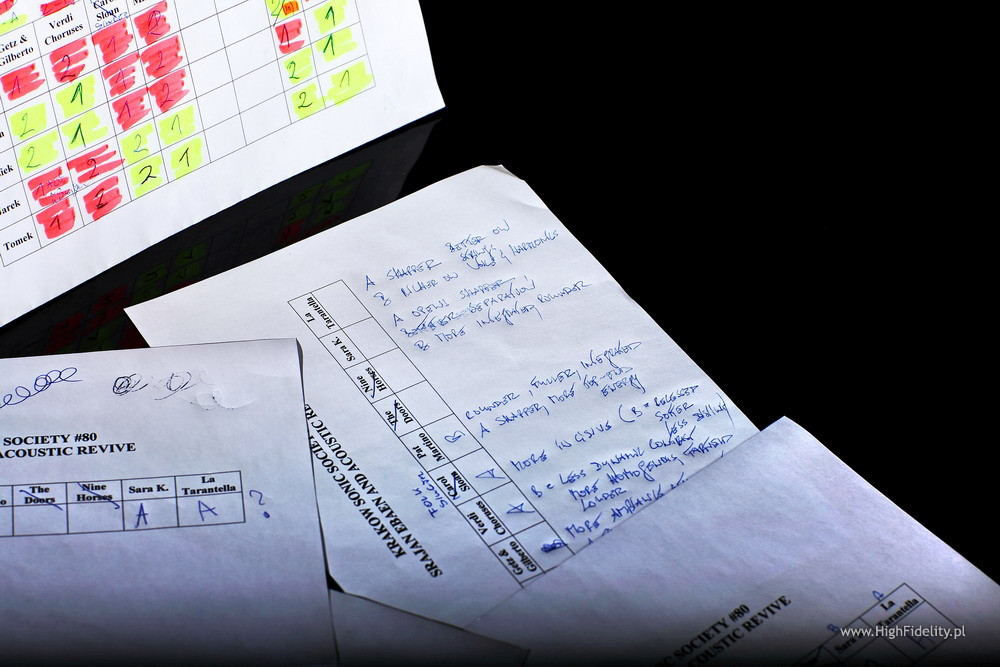 Getz &
Gilberto
Verdi
Choruses
Carol
Sloan
1 2 1 2 1 1
2 1 1 2 2 1
2 1 1 2 2 1
1 2 2 1
1 2 2 1
Marek
Tomek
A SHARPER BETTER ON
STRINGS
B RICHER ON VOICE & HARMONICS
A OPENS SHARPER
BETTER SEPARATION
B MORE INTEGRATED, ROUNDER
ROUNDER, FULLER, INTEGRATED
A SHARPER, MORE TOP-END
ENERGY
MORE INCISIVE (B = RELAXED
SOFTER
LESS
B = LESS DYNAMIC CONTRAST
MORE HOMOGENOUS,
LOUDER
MORE AMBIANCE
La
Tarantella
Sara K.
Nine
Horses
The
Doors
Pat
Martino
B
Carol
Sloan
A
Verdi
Choruses
A
Getz &
Gilberto
KRAKOW SONIC SOCIE
SRAJAN EBAEN AND ACOUSTIC R
SOCIETY #80
ACOUSTIC REVIVE
The
Doors
Nine
Horses
Sara K.
La
Tarantella
A A ?
SOCIETY #80
ACOUSTIC REVIVE
Sara
La
Tarantella
B A
www.HighFidelity.pl